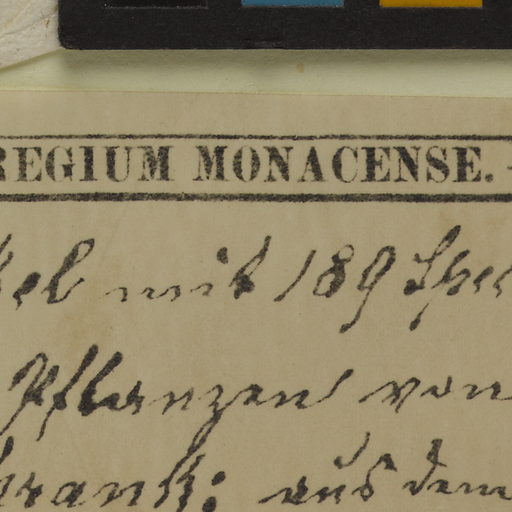 REGIUM MONACENSE. -
kel mit 189 Spec
Pflanzen von
hrank: aus dem